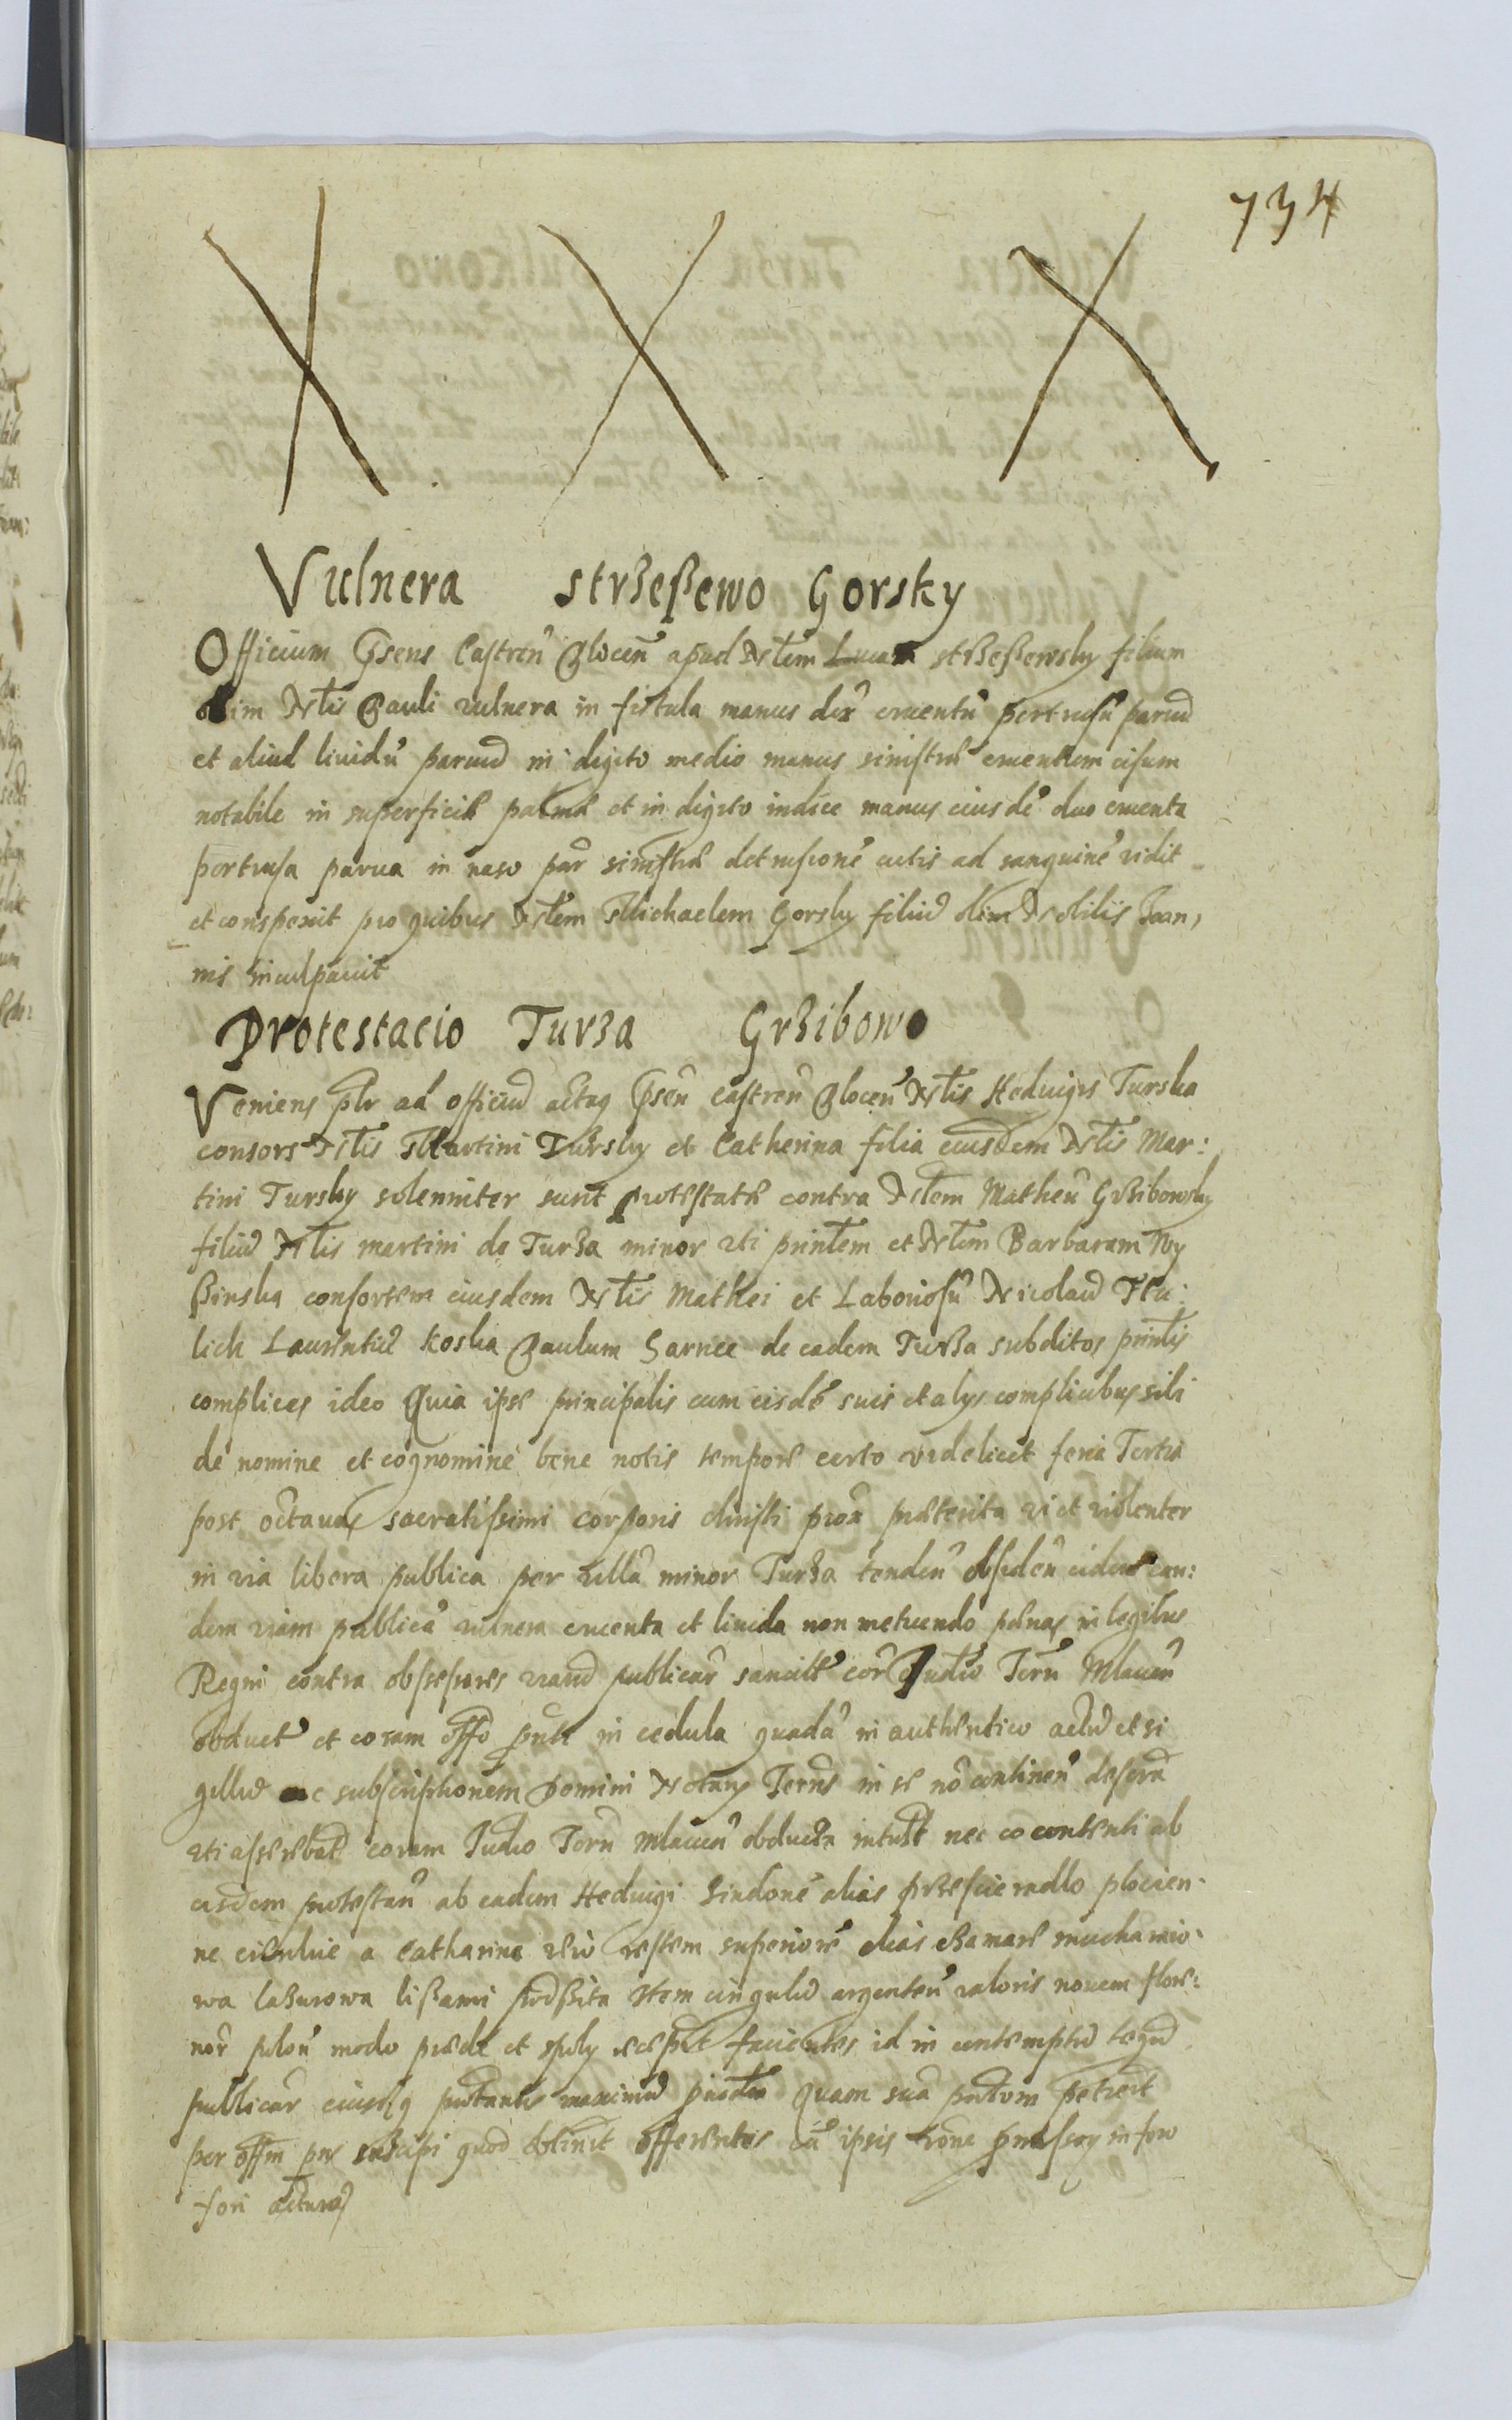 734
Vulnera strzeßewo Gorsky
Officium Psens Castren Plocen apud Nlem Lucam strzeßewsky filium
olim Nlis Pauli vulnera in fistula manus dex cruentu pertusu paruu
et aliud liuidu paruu in digito medio manus sinistre cruentum cisum
notabile in superficie palme et in digito indice manus eiusde duo cruenta
pertusa parua in naso par sinistra detrusione cutis ad sanguine vidit
et conspexit pro quibus Nlem Michaelem Gorsky filiu olim Nobilis Joan,
nis inculpauit
Protestacio Turza Grzibowo
Veniens plr ad officiu actaq Psen castren Plocen Nlis Heduigis Turska
consors Nlis Martini Tursky et Catherina filia eiusdem Nlis Mar:
tini Tursky solenniter sunt protestate contra Nlem Matheu Grzibowsky
filiu Nlis martini de Turza minor vti prinlem et Nlem Barbaram Wy
ßinska consortem eiusdem Nlis Mathei et Laboriosu Nicolau
lich Laurentiu Koska Paulum Sarnee de eadem Turza subditos prinlis
complices ideo Quia ipse principalis cum eisde suis et alys complicibus sibi
de nomine et cognomine bene notis tempore certo videlicet feria Tertia
post octauas sacratissimi corporis christi prox preterita vi et violenter
in via libera publica per villa minor Turza tenden obseden eidem ean:
dem viam publica vulnera cruenta et liuida non metuendo penas in legibus
Regni contra obsessores viaru publicar sancite cor Judio Terr Mlauen
obduct et coram offo pnti in cedula quada in authentico actu et si
gillu ac subscriptionem Domini Notary Terris in se no continen descra
vti asserebat coram Judio Terr Mlauen obducta intulit nec eo contenti ab
eisdem protestan ab eadem Heduigi Sindone alias przescieradlo plocien-
ne a Catharina vero vestem superiore alias
wa lazurowa lißami podßita Item cingulu argenteu valoris nouem flore:
nor polon modo prede et spoly recepit facientes id in contemptu legu
publicar eiusq maximu Quam sua petierit
per offm pns suscipi quod obtinuit offerentes ca ipsis in foro
fori acturas